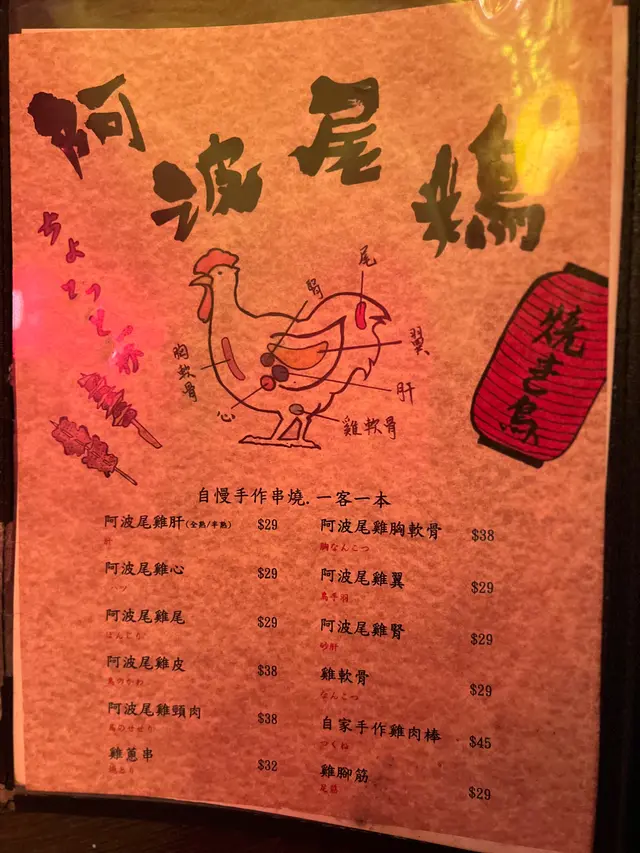 阿波尾鶏
ちょっと一杯
尾
腎
翼
胸軟骨
肝
心
雞軟骨
焼き鳥
自慢手作串燒.一客一本
阿波尾雞肝(全熟/半熟) $29
肝
阿波尾雞心 $29
ハツ
阿波尾雞尾 $29
ぼんじり
阿波尾雞皮 $38
鳥のかわ
阿波尾雞頸肉 $38
鳥のせせり
雞蔥串 $32
阿波尾雞胸軟骨 $38
胸なんこつ
阿波尾雞翼 $29
鳥手羽
阿波尾雞腎 $29
砂肝
雞軟骨 $29
なんこつ
自家手作雞肉棒 $45
つくね
雞腳筋 $29
尾筋